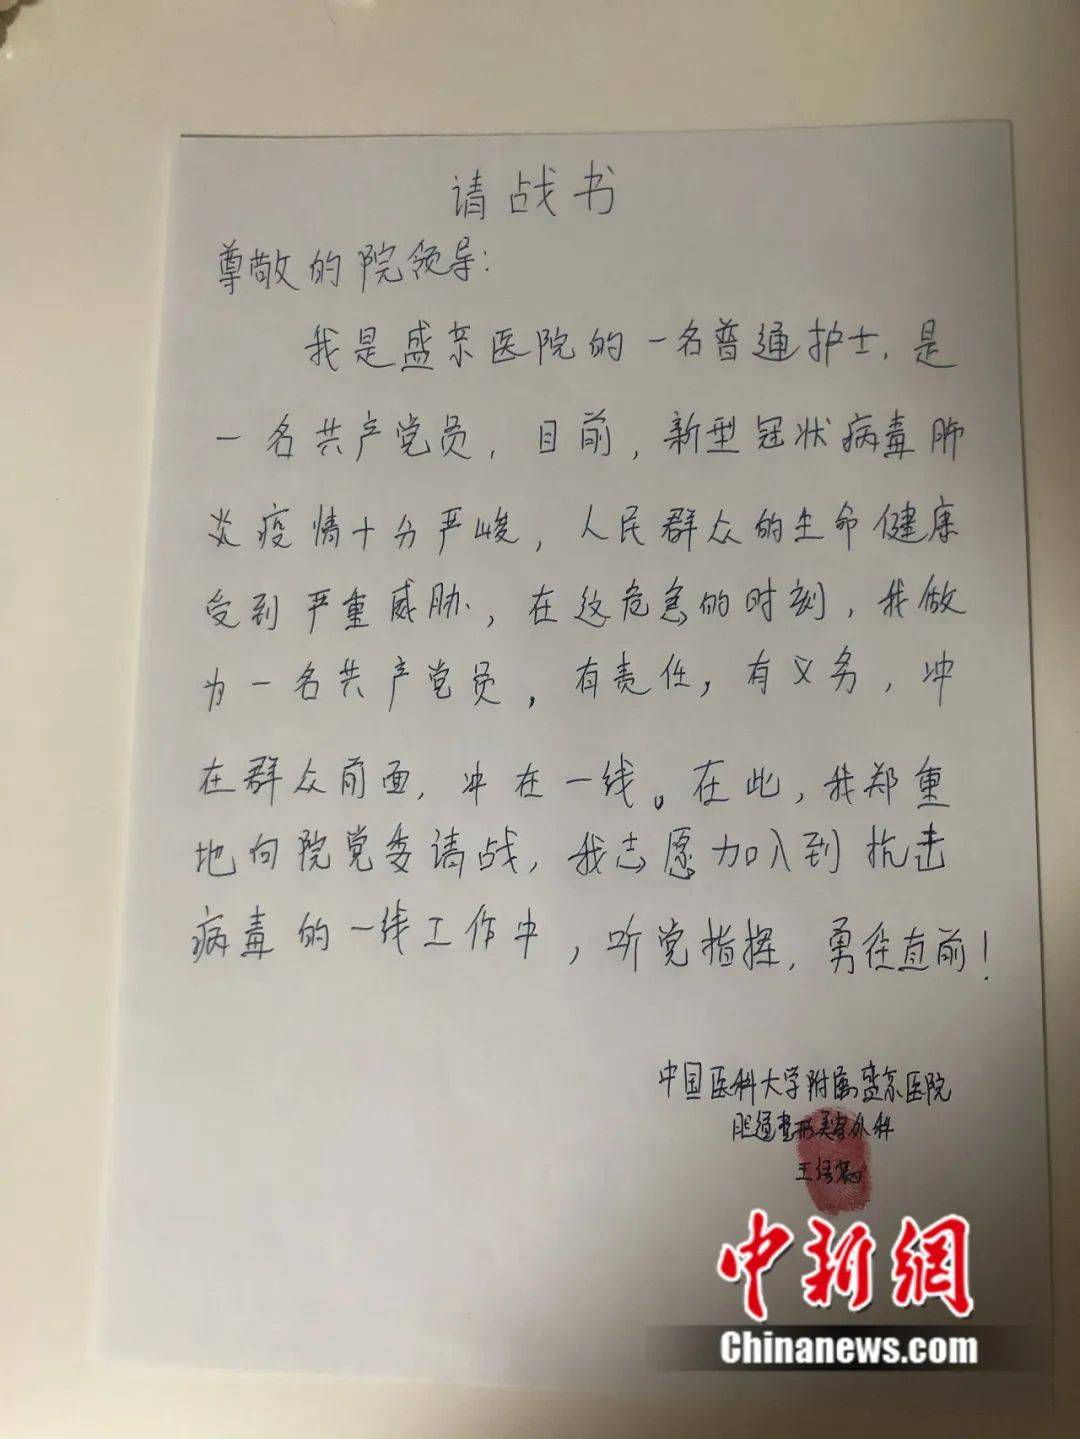 请战书
尊敬的院领导:
我是盛京医院的一名普通护士,是
一名共产党员,目前,新型冠状病毒肺
炎疫情十分严峻,人民群众的生命健康
受到严重威胁,在这危急的时刻,我做
为一名共产党员,有责任,有义务,冲
在群众前面,冲在一线。在此,我郑重
地向院党委请战,我志愿加入到抗击
病毒的一线工作中,听党指挥,勇往直前!
中国医科大学附属盛京医院
整形美容外科
王
中新網
Chinanews.com